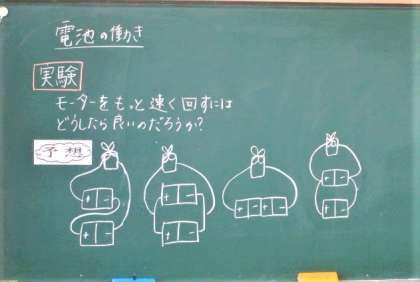 電池の働き
実験
モーターをもっと速く回すには
どうしたら良いのだろうか?
予想
+ - + - + - + - + -
+ - + - + -